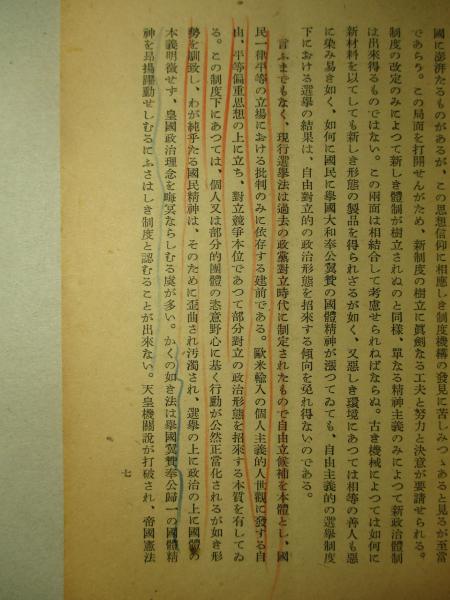 國に澎湃たるものがあるが、この思想信仰に相應しき制度機構の發見に苦しみつゝあると見るが至當
であらう。この局面を打開せんがため、新制度の樹立に眞劍なる工夫と努力と決意が要請せられる。
制度の改定のみによつて新しき體制が樹立されぬのと同樣、單なる精神主義のみによつて新政治體制
は出來得るものではない。この兩面は相結合して考慮せられねばならぬ。古き機械によつては如何に
新材料を以てしても新しき形態の製品を得られざるが如く、又惡しき環境にあつては相等の善人も惡
に染み易き如く、如何に國民に擧國大和奉公翼贊の國體精神が漲つてゐても、自由主義的の選擧制度
下における選擧の結果は、自由對立的の政治形態を招來する傾向を免れ得ないのである。
言ふまでもなく、現行選擧法は過去の政黨對立時代に制定されたもので自由立候補を本體とし、國
民一律平等の立場における批判のみに依存する建前である。歐米輸入の個人主義的人世觀に發する自
由、平等偏重思想の上に立ち、對立競爭本位であつて部分對立の政治形態を招來する本質を有してゐ
る。この制度下にあつては、個人又は部分的團體の恣意野心に基く行動が公然正當化されるが如き形
勢を馴致し、わが純乎たる國民精神は、そのために歪曲され汚濁され、選擧の上に政治の上に國體の
本義明徴せず、皇國政治理念を晦冥ならしむる虞が多い。かくの如き法は擧國翼贊奉公歸一の國體精
神を昂揚躍動せしむるにふさはしき制度と認むることが出來ない。天皇機關說が打破され、帝國憲法
七